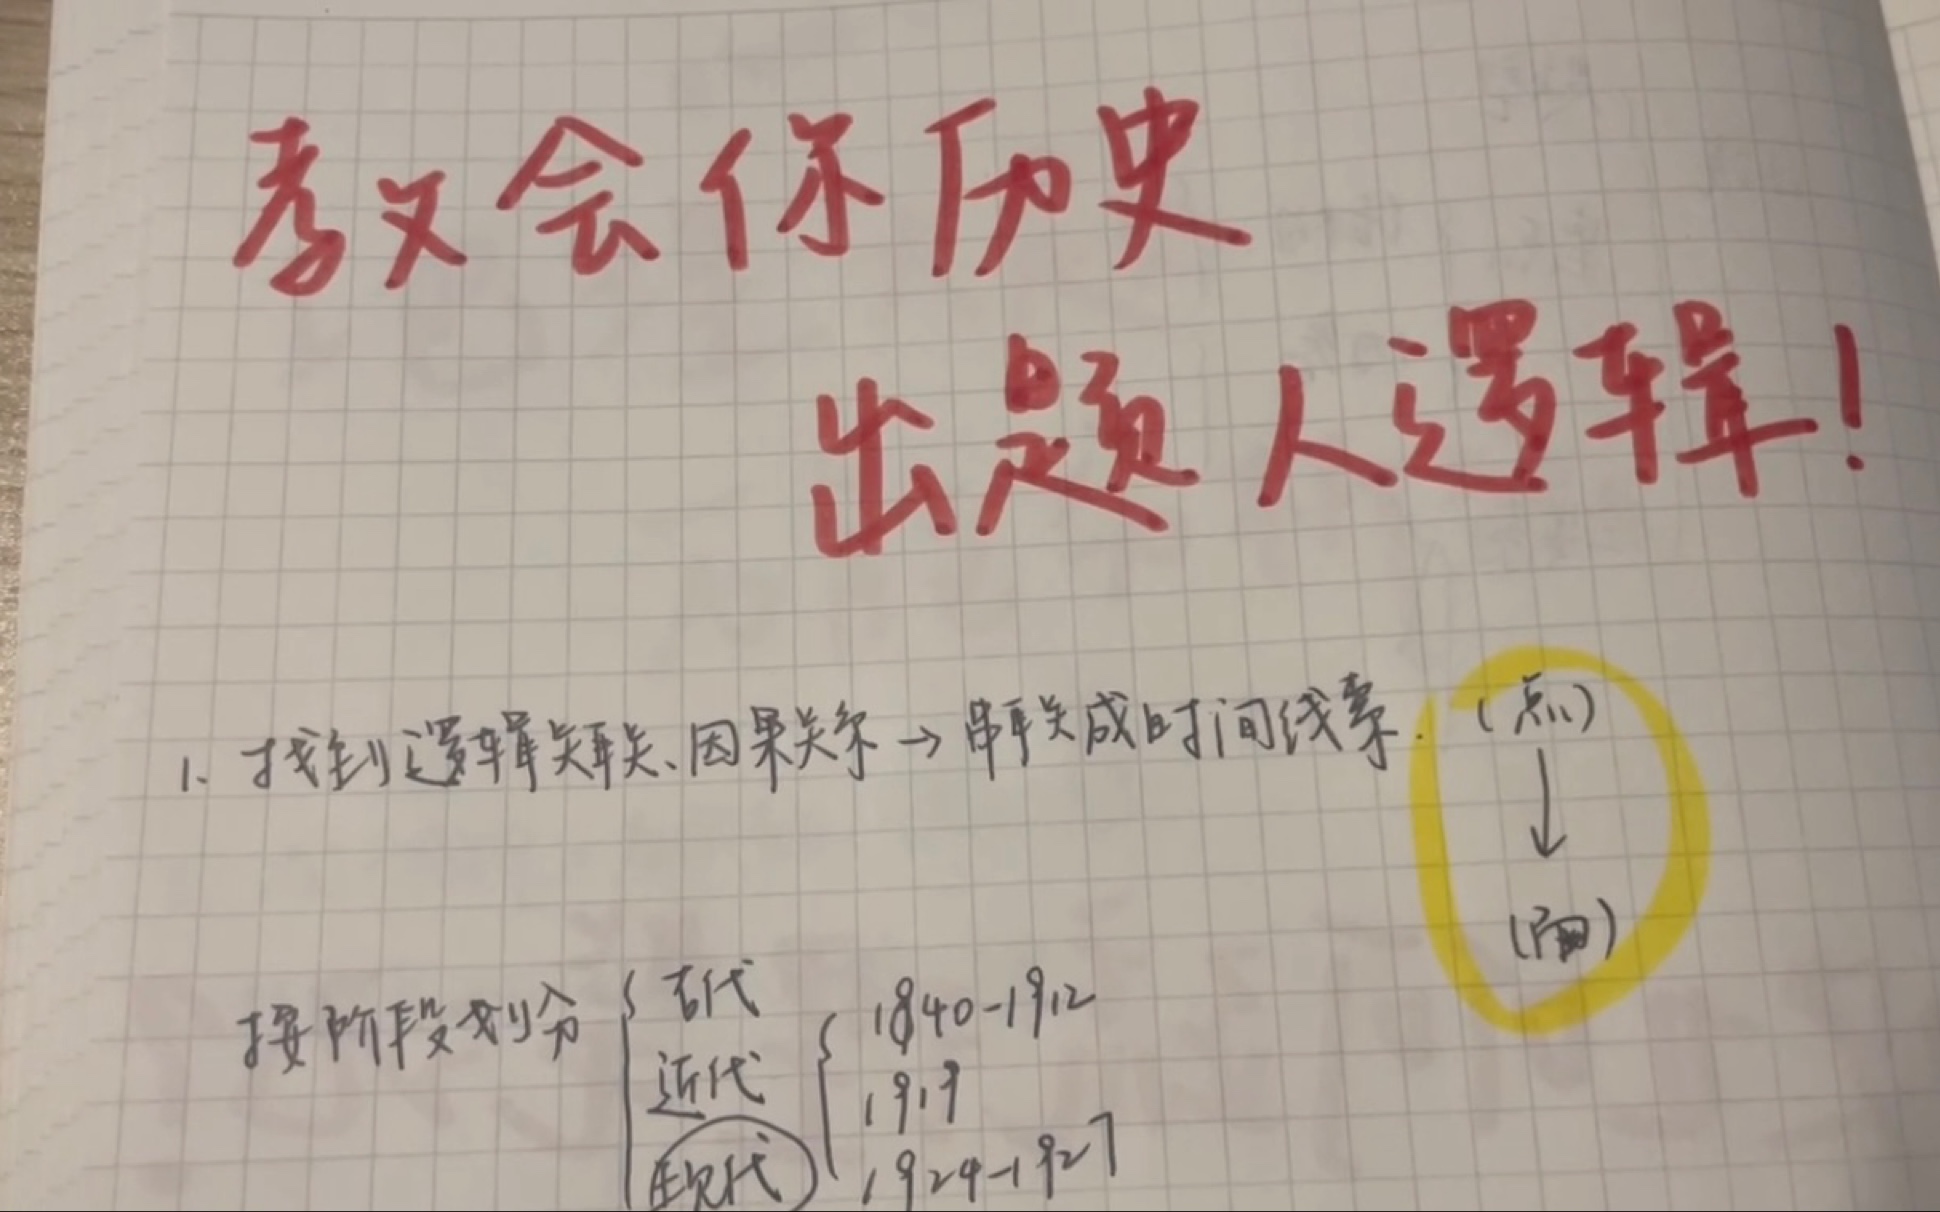 教会你历史
出题人逻辑!
1、找到逻辑关联、因果关系→串联成时间线索. (点)
↓
(面)
按阶段划分 { 古代
近代
现代
{ 1840-1912
1919
1924-1927